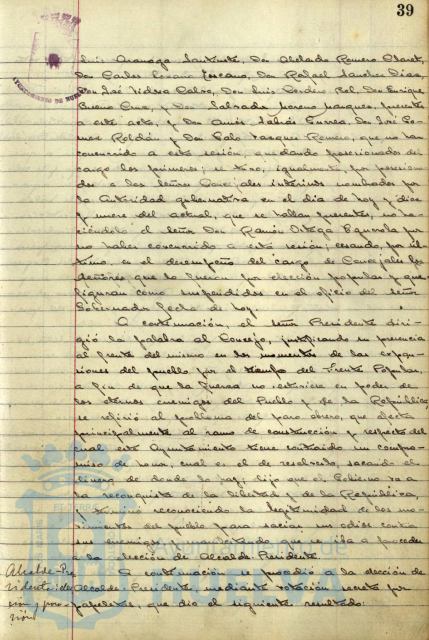 39
Luis Aranaga Santineta, Don Abelardo Romero Claret,
Don Carlos Lozano Toscano, Don Rafael Sanchez Días,
Don José Isidora Calvo, Don Luis Cordero Rol, Don Enrique
Bueno Cruz, y Don Salvador Moreno Marquez, presentes
a este acto, y Don Amós Sabrás Gurrea, Don José Go-
mez Roldán y Don Pablo Vazquez Romero, que no han
concurrido a esta sesión, quedando posesionados del
cargo los primeros; se tuvo, igualmente, por posesiona-
dos a los Señores Concejales interinos nombrados por
la Autoridad gubernativa en el día de hoy y diez
y nueve del actual, que se hallan presentes, no ha-
ciéndolo el señor Don Ramón Ortega Esquerola por
no haber concurrido a esta sesión; cesando, por úl-
timo, en el desempeño del cargo de Concejales los
señores que lo fueron por elección popular y que
figuran como suspendidos en el oficio del señor
Gobernador fecha de hoy.
A continuación, el señor Presidente diri-
gió la palabra al Concejo, justificando su presencia
al frente del mismo en los momentos de las expan-
siones del pueblo por el triunfo del Frente Popular,
a fin de que la fuerza no estuviera en poder de
los eternos enemigos del Pueblo y de la República;
se refirió al problema del paro obrero, que afecta
principalmente al ramo de construcción y respecto del
cual este Ayuntamiento tiene contraído un compro-
miso de honor, cual es el de resolverlo, sacando el
dinero de donde lo haya; dijo que el Gobierno va a
la reconquista de la libertad y de la República,
y terminó reconociendo la legitimidad de los mo-
vimientos del pueblo para saciar sus odios contra
sus enemigos y manifestando que se iba a proceder
a la elección de Alcalde Presidente.
Alcalde-Pre
sidente: elec
ción y pose
sión
A continuación se procedió a la elección de
Alcalde-Presidente, mediante votación secreta por
papeletas, que dio el siguiente resultado: